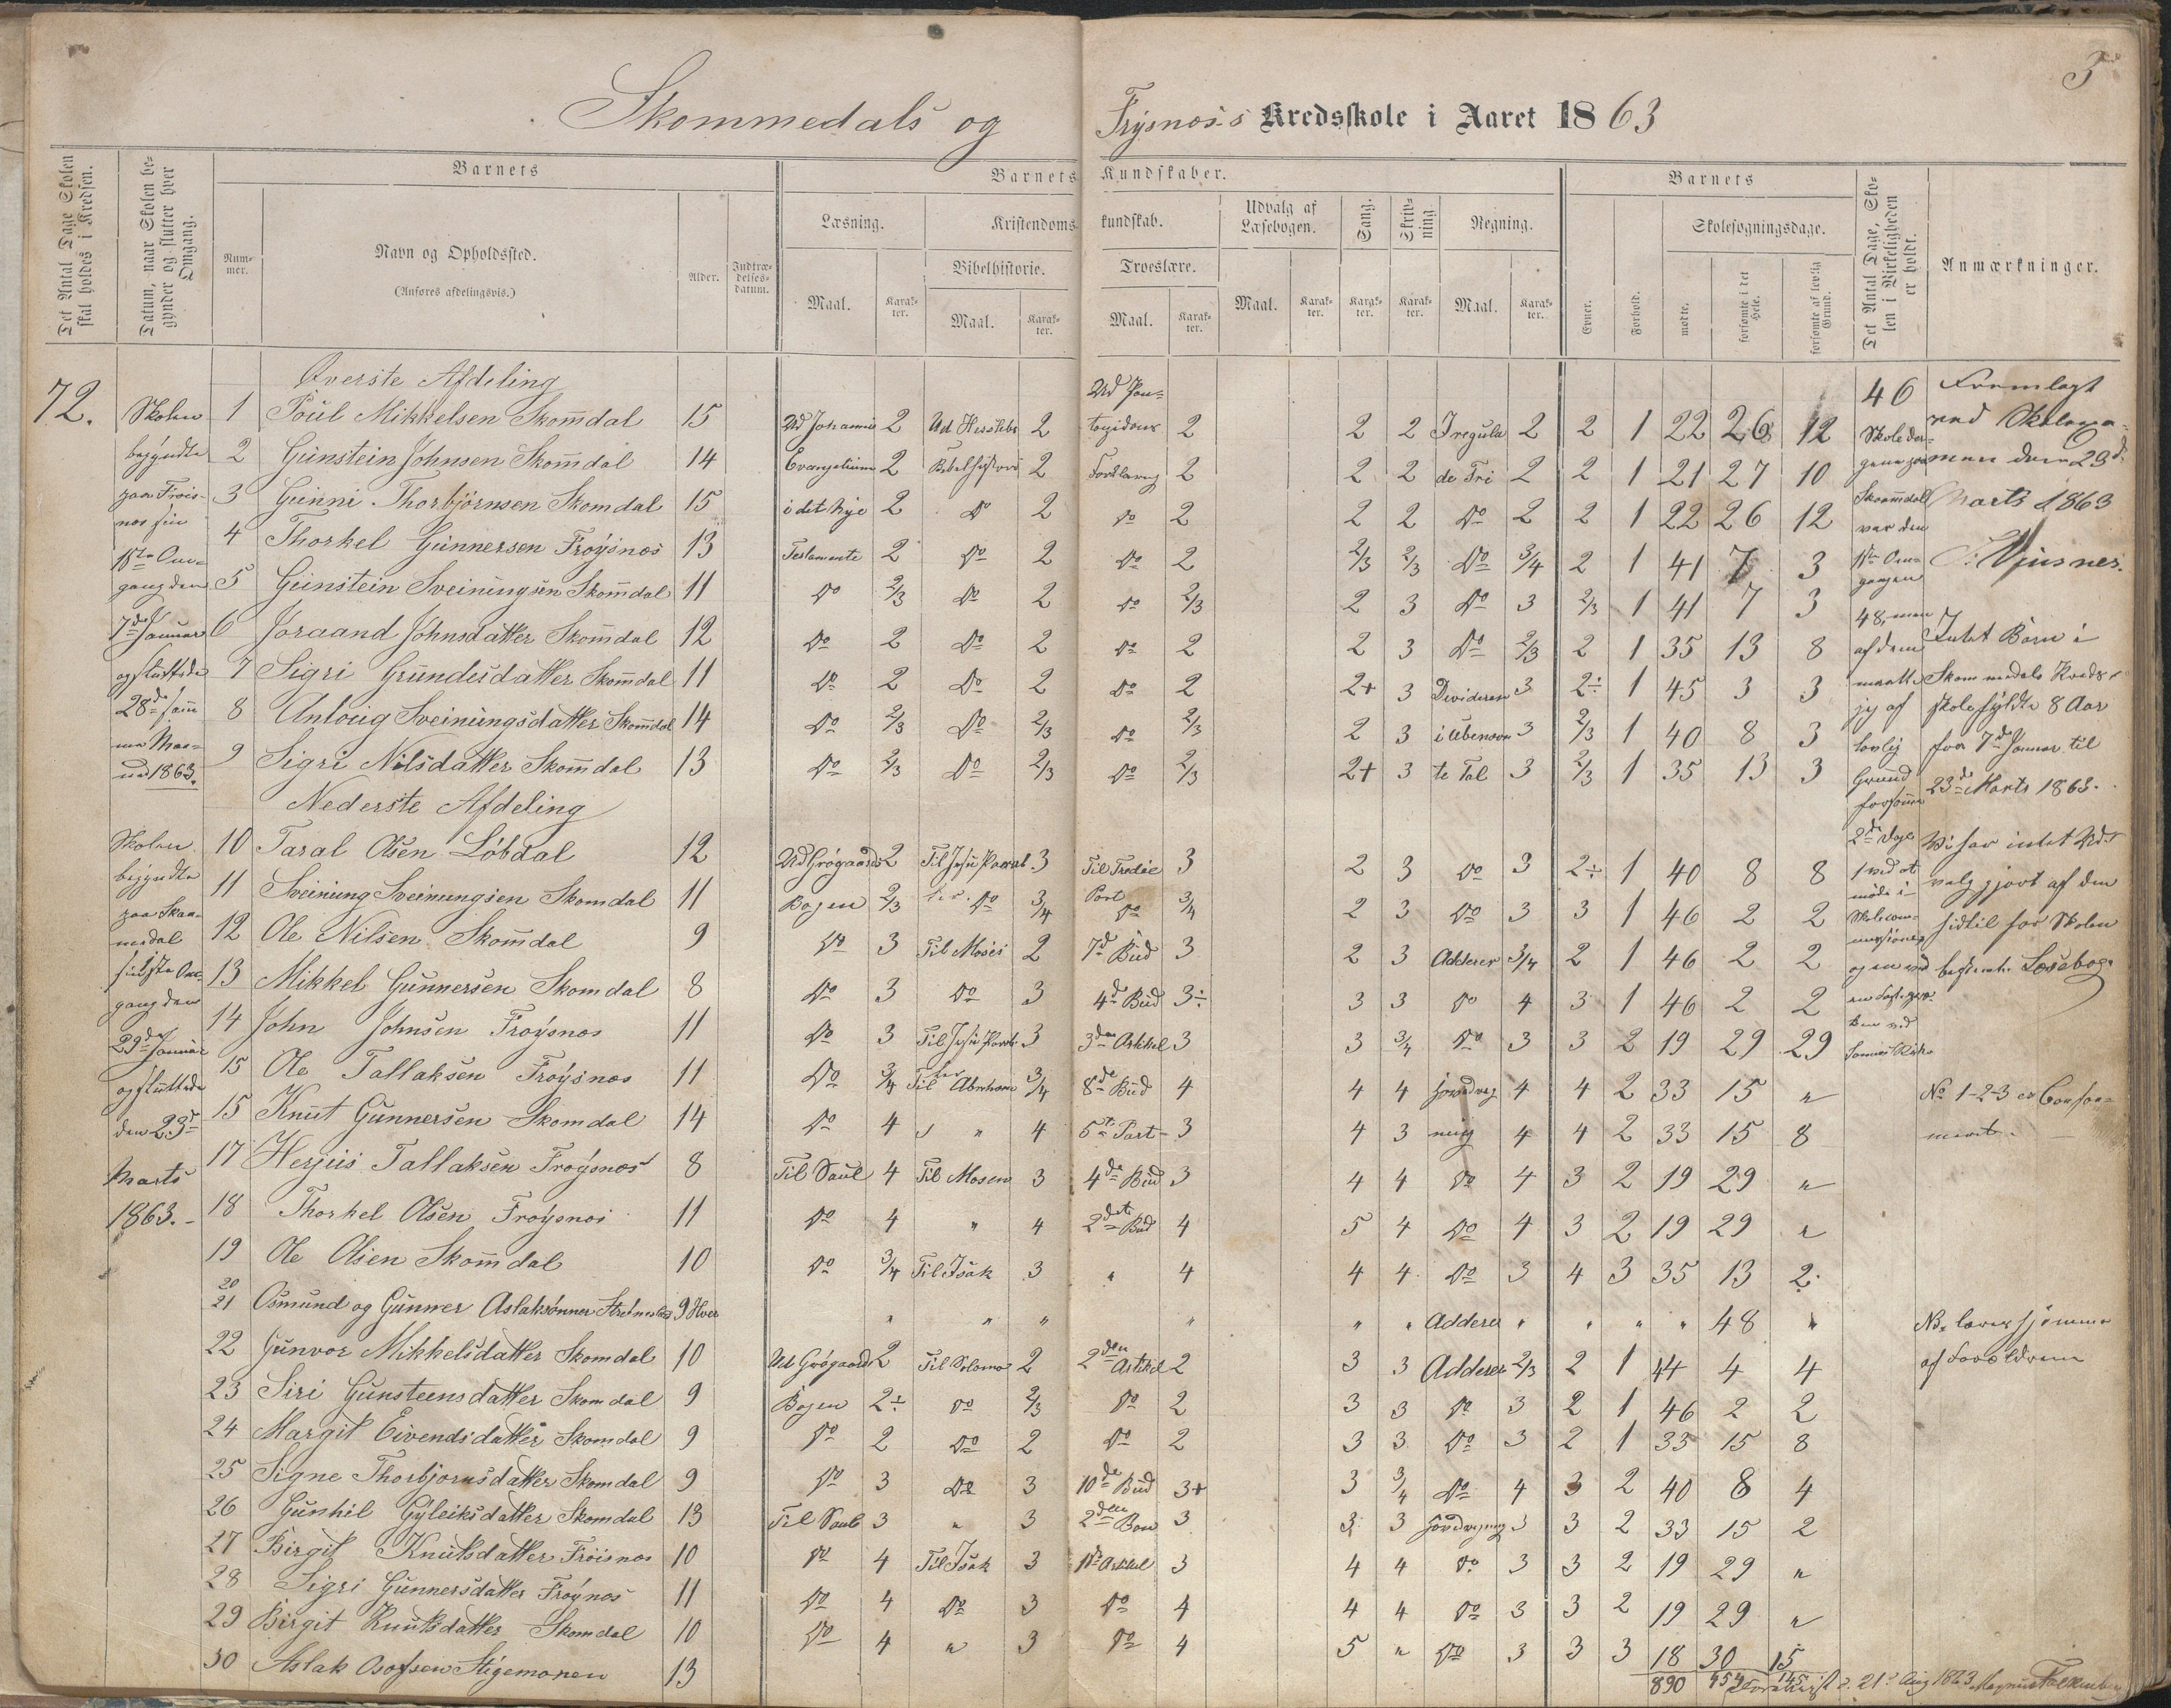 3
Skommedals og Frøysnos's Kredsskole i Aaret 1863
Det Antal Dage Skolen skal holdes i Kredsen.
Datum, naar Skolen begynder og slutter hver Omgang.
Barnets
Nummer.
Navn og Opholdssted.
(Anføres afdelingsvis.)
Alder.
Indtrædelsesdatum.
Barnets Kundskaber.
Læsning.
Maal.
Karakter.
Kristendomskundskab.
Bibelhistorie.
Maal.
Karakter.
Troeslære.
Maal.
Karakter.
Udvalg af Læsebogen.
Maal.
Karakter.
Sang.
Karakter.
Skrivning.
Karakter.
Regning.
Maal.
Karakter.
Barnets
Evner.
Forhold.
Skolesøgningsdage.
mødte.
forsømte i det Hele.
forsømte af lovlig Grund.
Det Antal Dage, Skolen i Virkeligheden er holdt.
Anmærkninger.
72.
Skolen
begyndte
paa Frøis-
nos sin
1ste Om-
gang den
7de Januar
og sluttede
28de sam
me Maa-
ned 1863.
Skolen
begyndte
paa Skaa-
medal
sin 1ste Om-
gang den
29de Januar
og sluttede
den 23de
Marts
1863.
Øverste Afdeling
1 Poul Mikkelsen Skomdal 15 Ud Johannis 2 Ud Herslebs 2 Ud Pontopidans 2 2 2 Iregula 2 2 1 22 26 12
2 Gunstein Johnsen Skomdal 14 Evangelium 2 Bibelhistorie 2 Forklaring 2 2 2 de Tri 2 2 1 21 27 10
3 Gunni Thorbjörnsen Skomdal 15 i det Nye 2 Do 2 Do 2 2 2 Do 2 2 1 22 26 12
4 Thorkel Gunnersen Frøysnos 13 Testamente 2 Do 2 Do 2 2/3 2/3 Do 3/4 2 1 41 7 3
5 Gunstein Sveinungsen Skomdal 11 Do 2/3 Do 2 Do 2/3 2 3 Do 3 2/3 1 41 7 3
6 Joraand Johnsdatter Skomdal 12 Do 2 Do 2 Do 2 2 3 Do 2/3 2 1 35 13 8
7 Sigri Grundesdatter Skomdal 11 Do 2 Do 2 Do 2 2+ 3 Dividere 3 2÷ 1 45 3 3
8 Anlaug Sveinungsdatter Skomdal 14 Do 2/3 Do 2/3 Do 2/3 2 3 i Ubenævn 3 2/3 1 40 8 3
9 Sigri Nilsdatter Skomdal 13 Do 2/3 Do 2/3 Do 2/3 2+ 3 te Tal 3 2/3 1 35 13 3
Nederste Afdeling
10 Taral Olsen Løbdal 12 Ud Grøgaards 2 Til Jesu Parab 3 Til Tredie 3 2 3 Do 3 2÷ 1 40 8 8
11 Sveinung Sveinungsen Skomdal 11 Bogen 2/3 ler Do 3/4 Part Do 3/4 2 3 Do 3 3 1 46 2 2
12 Ole Nilsen Skomdal 9 Do 3 Til Moses 2 7de Bud 3 2 3 Adderer 3/4 2 1 46 2 2
13 Mikkel Gunnersen Skomdal 8 Do 3 Do 3 4de Bud 3÷ 3 3 Do 4 3 1 46 2 2
14 John Johnsen Frøysnos 11 Do 3 Til Jesu Parab 3 3den Artikel 3 3 3/4 Do 3 3 2 19 29 29
15 Ole Tallaksen Frøysnos 11 Do 3/4 Til Abraham 3/4 8de Bud 4 4 4 Hovedreg 4 4 2 33 15 "
15 Knut Gunnersen Skomdal 14 Do 4 " 4 5te Part 3 4 3 ning 4 4 2 33 15 8
17 Herjus Tallaksen Frøysnos 8 Til Saul 4 Til Mosen 3 4de Bud 3 4 4 Do 4 3 2 19 29 "
18 Thorkel Olsen Frøysnos 11 Do 4 " 4 2det Bud 4 5 4 Do 4 3 2 19 29 "
19 Ole Olsen Skomdal 10 Do 3/4 Til Isak 3 " 4 4 4 Do 3 4 3 35 13 2
20 21 Osmund og Gunner Aslaksønner 9 Hver " " " " " " Addere " " " " 48 "
22 Gunvor Mikkelsdatter Skomdal 10 Ud Grøgaards 2 Til Salomo 2 2den Artikel 2 3 3 Adderer 2/3 2 1 44 4 4
23 Siri Gunsteensdatter Skomdal 9 Bogen 2÷ Do 2/3 Do 2 3 3 Do 3 2 1 46 2 2
24 Margit Eivendsdatter Skomdal 9 Do 2 Do 2 Do 2 3 3 Do 3 2 1 33 15 8
25 Signe Thorbjornsdatter Skomdal 9 Do 3 Do 3 10de Bud 3+ 3 3/4 Do 4 3 2 40 8 4
26 Gunhil Gyleiksdatter Skomdal 13 Til Saul 3 " 3 2den Bøn 3 3 3 Hovdregning 3 3 2 33 15 2
27 Birgit Knutsdatter Frøisnos 10 Do 4 Til Isak 3 1ste Artikel 3 4 4 Do 3 3 2 19 29 "
28 Sigri Gunnersdatter Frøynos 11 Do 4 Do 3 Do 4 4 4 Do 3 3 2 19 29 "
29 Birgit Knutsdatter Skomdal 10 Do 4 " 3 Do 4 5 " Do 3 3 3 18 30 15
30 Aslak Osofsen Stigemonen 13
890 454 145
46
Skoleda-
gene paa
Skaamdal
var den
1ste Om-
gangen
48, men
af dem
maatte
jeg af
lovlig
Grund
forsøme
2de Dage
1 ved at
møde i
Skolecom-
missionen
og en ved
Fremlagt
ved Skoleexa-
men den 23de
Marts 1863
Intet Barn i
Skommedals Kreds-
skole fyldte 8 Aar
fra 7de Januar til
23de Marts 1863.
Vi har intet Ud-
valg gjort af den
hidtil for Skolen
bestemte Læsebog
No 1-2-3 er Confor-
meret.
NB læres hjemme
af Forældrene
d. 21de Aug 1863